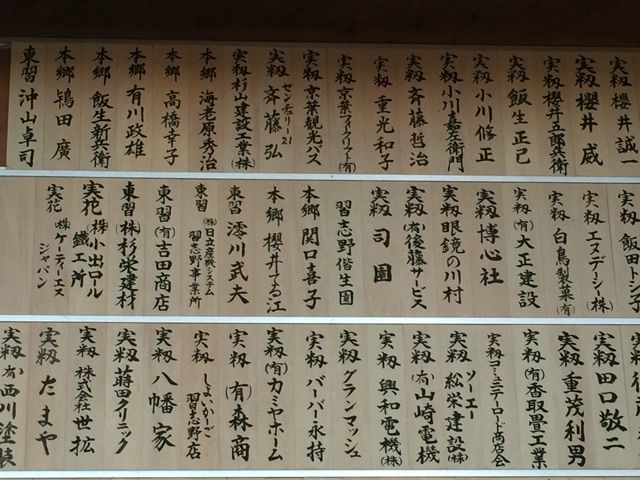 実籾 櫻井誠一
実籾 櫻井 威
実籾 櫻井五郎兵衛
実籾 飯生正巳
実籾 小川修正
実籾 小川嘉左衛門
実籾 斉藤哲治
実籾 重光和子
実籾 京葉フォークリフト(有)
実籾 京葉観光バス
センチュリー21
実籾 斉藤 弘
実籾 杉山建設工業(株)
本郷 海老原秀治
本郷 高橋幸子
本郷 有川政雄
本郷 飯生新兵衛
本郷 鴇田 廣
東習 沖山卓司
実籾 飯田トシ子
実籾 エヌデーシー(株)
実籾 白鳥製菓(有)
実籾 (有)大正建設
実籾 博心社
実籾 眼鏡の川村
実籾 (有)後藤サービス
実籾 司園
習志野偕生園
本郷 関口喜子
本郷 櫻井てる江
東習 澪川武夫
東習 (株)日立産機システム
習志野事業所
東習 (有)吉田商店
東習 (株)杉栄建材
実花 (株)小出ロール
鐵工所
実花 (株)ケーティーエス
ジャパン
実籾 田口敬二
実籾 重茂利男
実籾 (有)香取畳工業
実籾コミュニテーロード商店会
ソーエー
実籾 松栄建設(株)
実籾 (有)山崎電機
実籾 興和電機(株)
実籾 グランマッシュ
実籾 バーバー永持
実籾 (有)カミヤホーム
実籾 (有)森商
実籾 しょいかーご
習志野店
実籾 八幡家
実籾 蒔田クリニック
実籾 株式会社世拡
実籾 たまや
実籾 (有)西川塗装